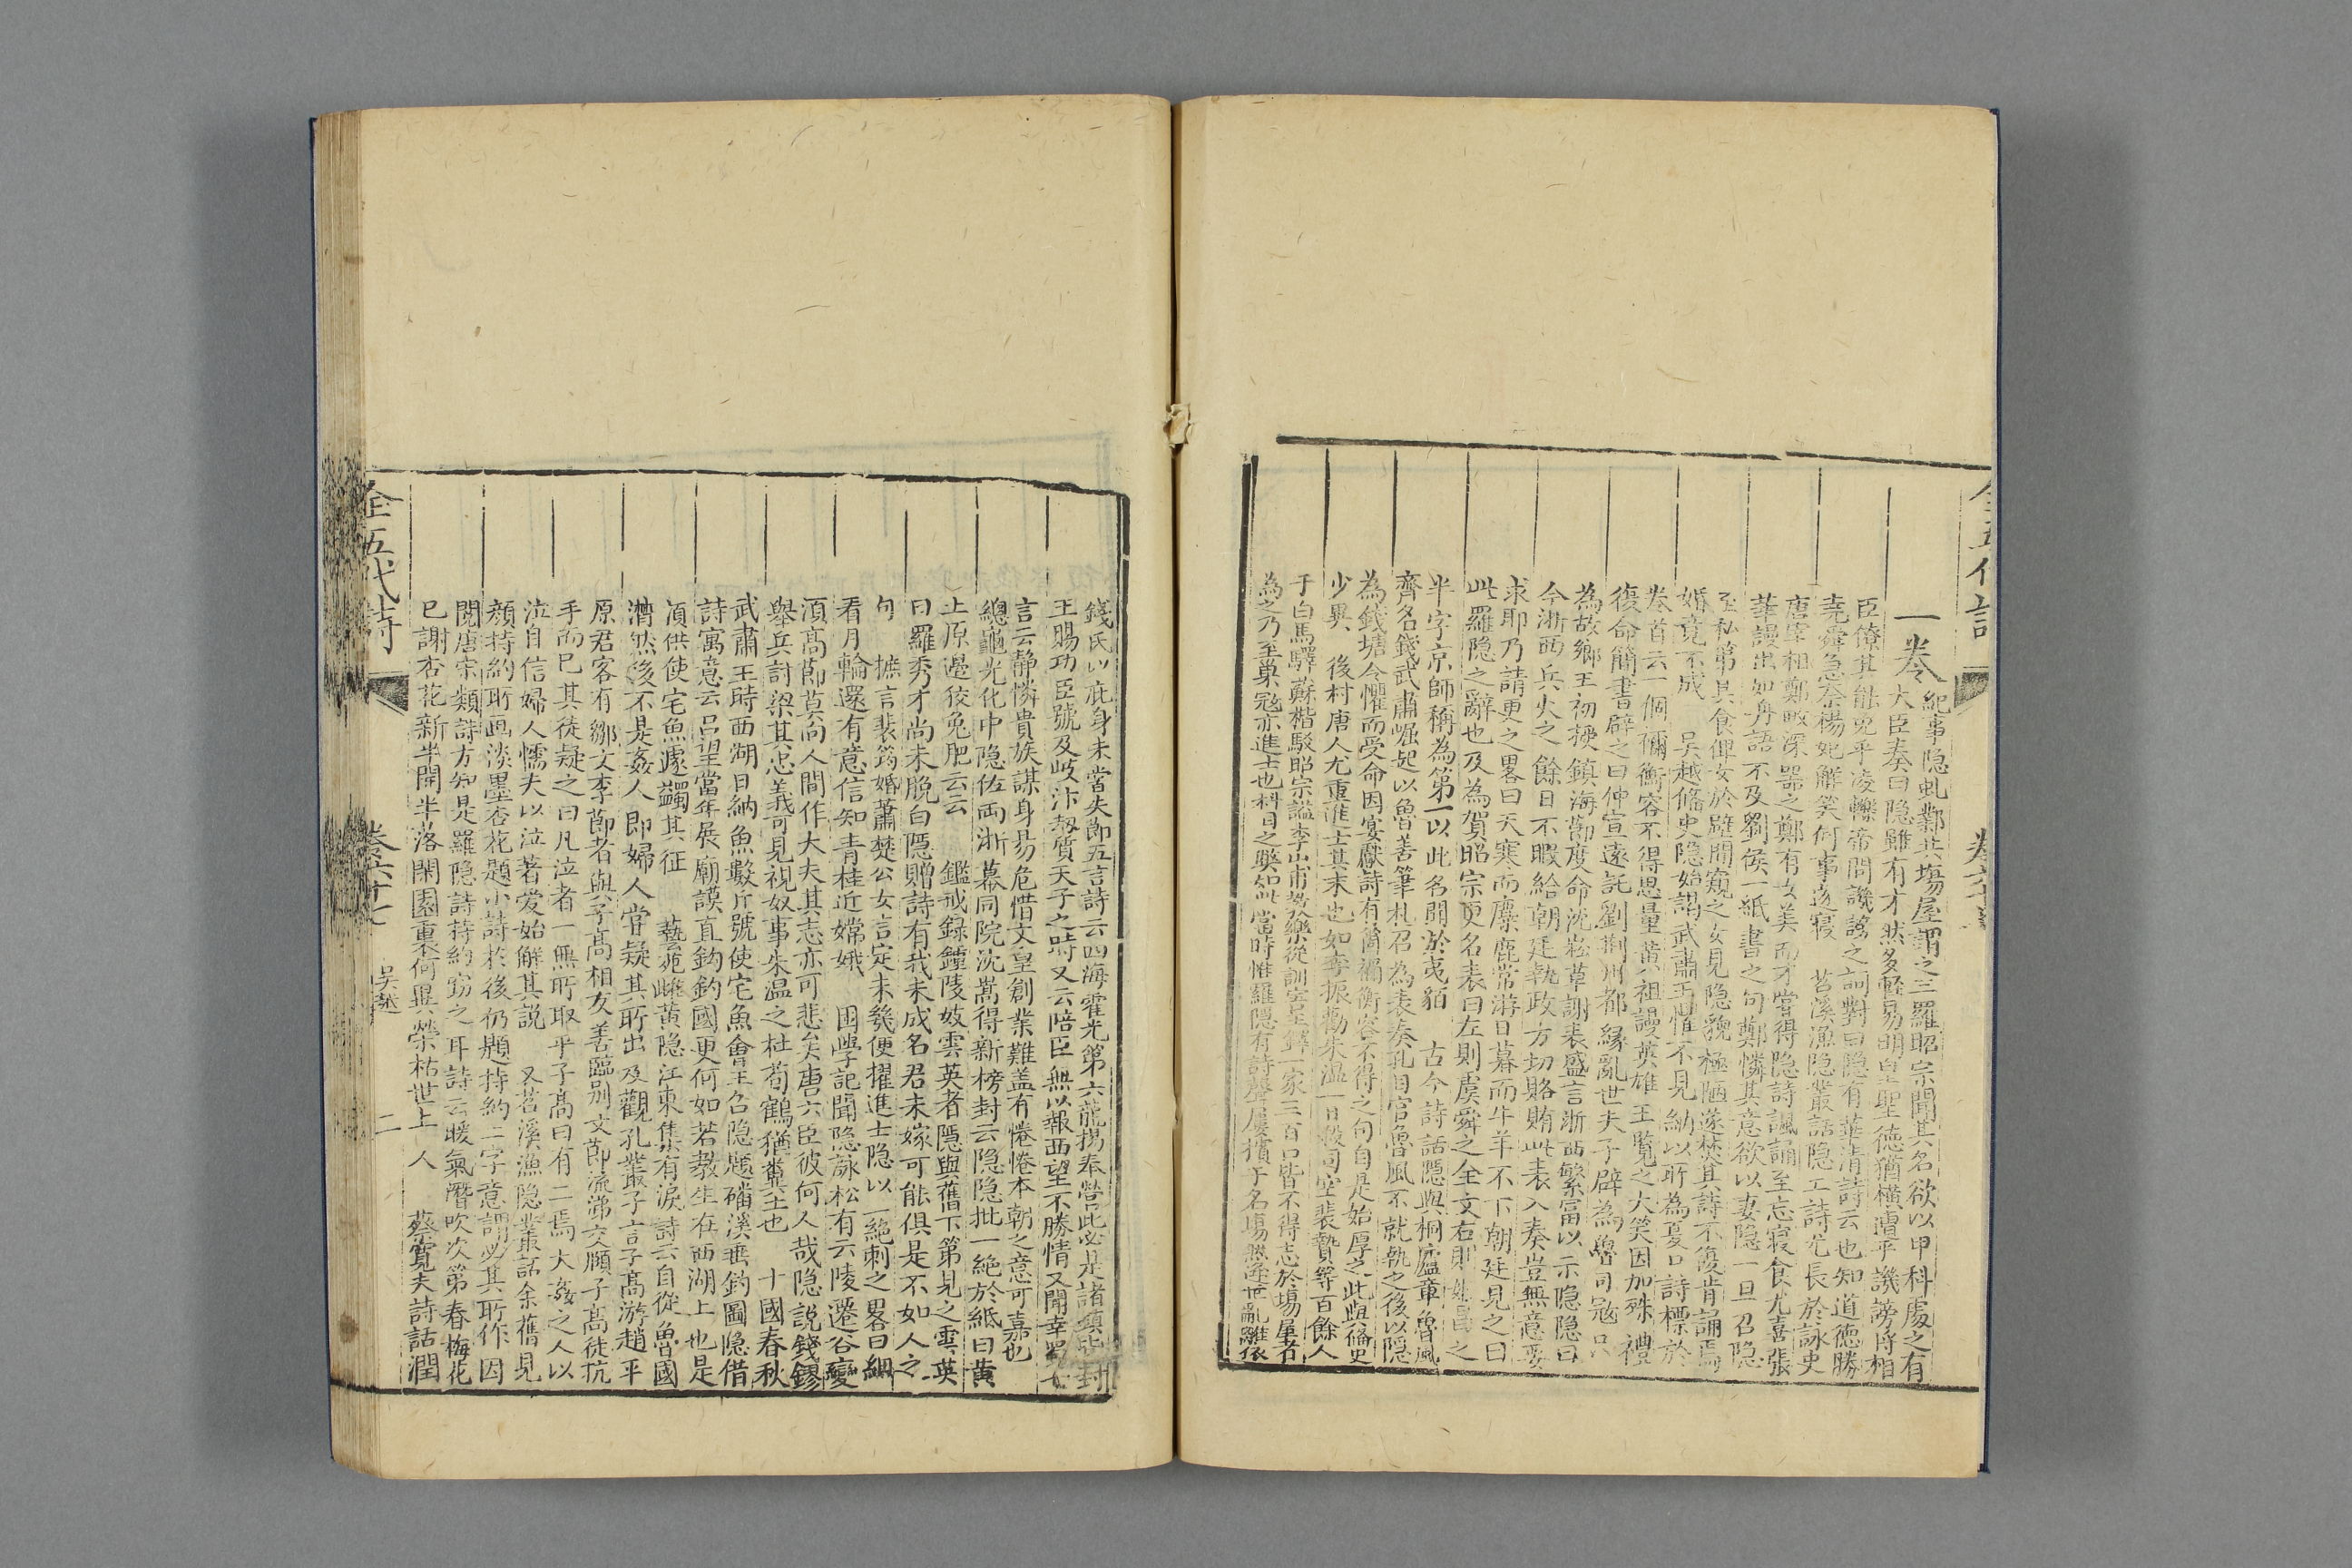 一卷
紀事隐虬鄴共塲屋謂之三羅昭宗聞其名欲以甲科處之有
大臣奏曰隐雖有才然多輕易明皇聖德猶橫遭平譏謗將相
臣僚其能免乎凌轢帝問譏謗之詞對曰隐有華清詩云也知道德勝
堯舜急奈楊妃解笑何事遂寢　苕溪漁隐叢話隐工詩尤長於詠史
唐宰相鄭畋深器之鄭有女美而才嘗得隐詩諷誦至忘寢食尤喜張
華謾出如舟語不及劉侯一紙書之句鄭憐其意欲以妻隐一旦召隐
至私第其食俾女於壁間窺之女見隐貌極陋遂焚其詩不復肯誦焉
婚竟不成　吳越備史隐始謁武肅王懼不見納以所為夏口詩標於
卷首云一個禰衡容不得思量黄祖謾英雄王覽之大笑因加殊禮
復命簡書辟之曰仲宣遠託劉荆州都緣亂世夫子辟為魯司寇只
為故鄉王初授鎮海節度命沈崧草謝表盛言浙西繁富以示隐隐曰
今浙西兵火之餘日不暇給朝廷執政方切賂賄此表入奏豈無意要
求耶乃請更之畧曰天寒而麋鹿常游日暮而牛羊不下朝廷見之曰
此羅隐之辭也及為賀昭宗更名表曰左則虞舜之全文右則姬昌之
半字京師稱為第一以此名聞於夷貊　古今詩話隱與桐廬章魯風
齊名錢武肅崛起以魯善筆札召為表奏孔目官魯風不就執之後以隱
為錢塘令懼而受命因宴獻詩有箇禰衡容不得之句自是始厚之此與備史
少異　後村唐人尤重進士其末也如李振勸朱溫一日殺司空裴贄等百餘人
于白馬驛蘇楷駁昭宗謚李山甫教樂從訓害王鐸一家三百口皆不得志於塲屋者
為之乃至巢寇亦進士也科目之獘如此當時惟羅隱有詩聲屢擯于名塲然遂世亂雖依
錢氏以庇身未嘗失節五言詩云四海霍光第六龍揚奉營此必是諸鎮皆封
王賜功臣號及岐汴刼質天子之時又云陪臣無以報西望不勝情又聞幸蜀七
言云静憐貴族謀身易危惜文皇創業難盖有惓惓本朝之意可嘉也
總龜光化中隐佐両浙幕同院沈嵩得新榜封云隐隐批一絕於紙曰黄
土原邊狡兔肥云云　鑑戒録鍾陵妓雲英者隱與舊下第見之雲英
曰羅秀才尚未脱白隱贈詩有我未成名君未嫁可能俱是不如人之
句　摭言裴筠婚蕭楚公女言定未幾便擢進士隐以一絕刺之畧曰細
看月輪還有意信知青桂近嫦娥　困學記聞隐詠松有云陵遷谷變
須髙節莫向人間作大夫其志亦可悲矣唐六臣彼何人哉隐説錢鏐
舉兵討梁其忠義可見視奴事朱温之杜荀鶴猶糞土也　十國春秋
武肅王時西湖日納魚數斤號使宅魚會王召隐題磻溪垂釣圖隐借
詩寓意云吕望當年展廟謨直鈎釣國更何如若敎生在西湖上也是
湏供使宅魚遽蠲其征　藝苑雌黄隐江東集有淚詩云自從魯國
潸然後不是姦人即婦人嘗疑其所出及觀孔叢子言子髙游趙平
原君客有鄒文李節者與子髙相友善臨别文節流涕交頤子髙徒抗
手而巳其徒疑之曰凡泣者一無所取乎子髙曰有二焉大姦之人以
泣自信婦人懦夫以泣著愛始解其説　又苕溪漁隐叢話余舊見
顔持約所画淡墨杏花題小詩於後仍題持約二字意謂必其所作因
閲唐宋類詩方知是羅隐詩持約竊之耳詩云暖氣潛吹次第春梅花
巳謝杏花新半開半落閑園裏何異榮枯世上人　蔡寬夫詩話潤
全五代詩　卷六十七　吳越　二